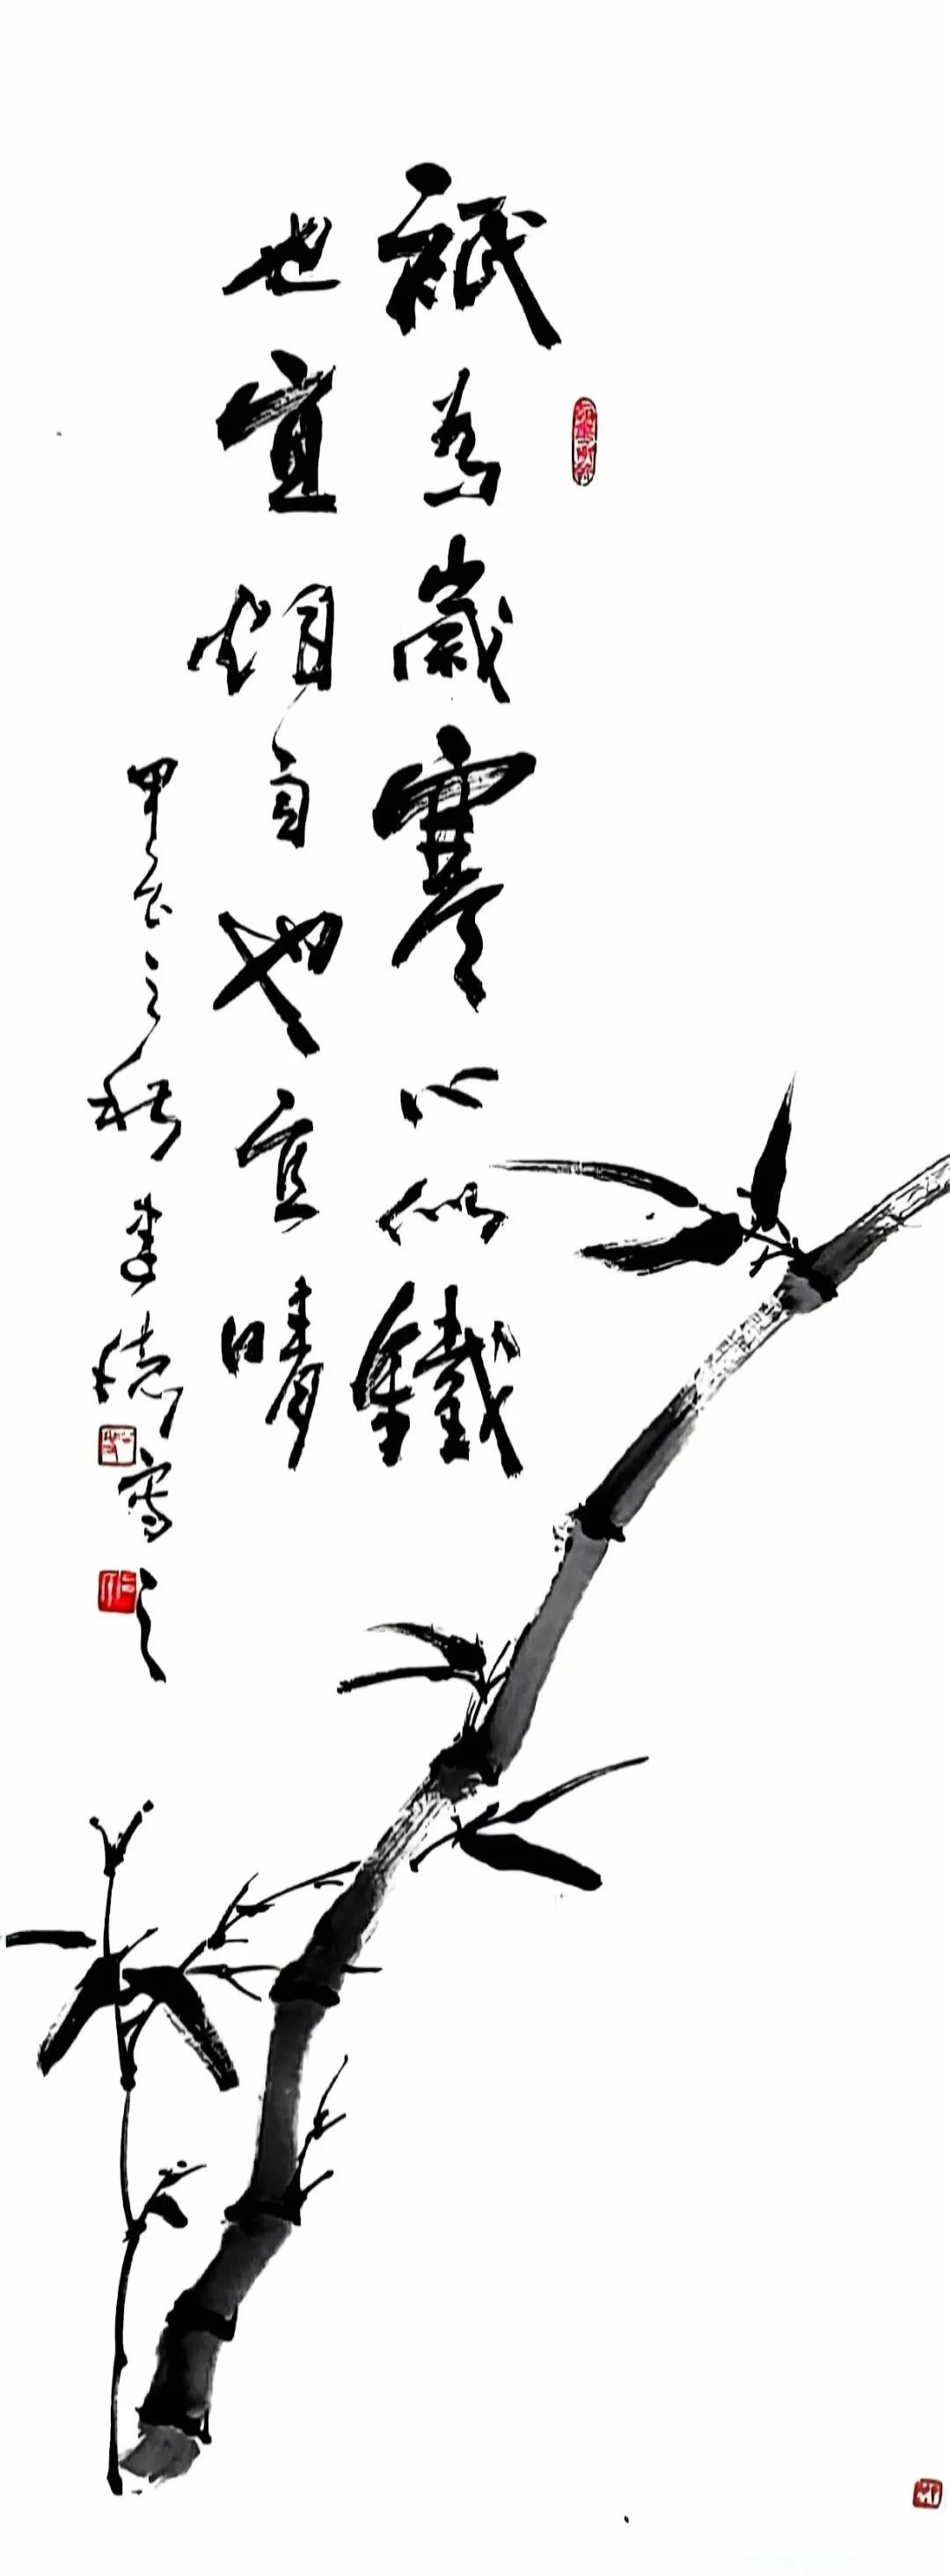 祇為歲寒心似鐵
也宜烟雨也宜晴
甲辰之秋德寫之